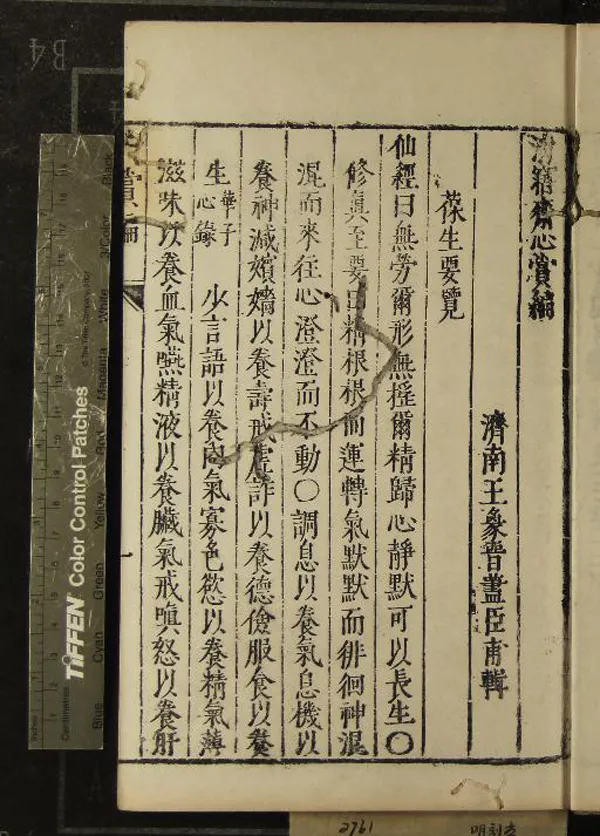 清寤齋心賞編
濟南王象晉藎臣甫輯
葆生要覽
仙經曰無勞爾形無搖爾精歸心靜默可以長生〇
修眞至要曰精根根而運轉氣默默而徘徊神混
混而來往心澄澄而不動〇調息以養氣息機以
養神減嬪嬙以養壽戒虛詐以養德儉服食以養
生華子心錄 少言語以養內氣寡色慾以養精氣薄
滋味以養血氣嚥精液以養臟氣戒嗔怒以養肝
賞編
B4
TIFFEN Color Control Patches
© The Tiffen Company, 2007
Inches
Centimetres
Blue
Cyan
Green
Yellow
Red
Magenta
White
3/Color
Black
2761
明刻本